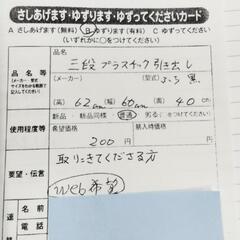 さしあげます・ゆずります・ゆずってくださいカード
A さしあげます(無料) B ゆずります(有料) C ゆずってください
(いずれかに○をつけてください)
品名等
(メーカー・型式・
サイズなどの規格を
記入してください)
三段 プラスチック引出し
(メーカー) (型式) ふち 黒
(高さ) 62cm (幅) 60cm (高さ) 40cm
使用程度等
新品・新品同様・普通・劣る(
希望価格 200 円
購入時価格 円
要望・伝言
取りにきてくださる方
Web希望
名前
電話